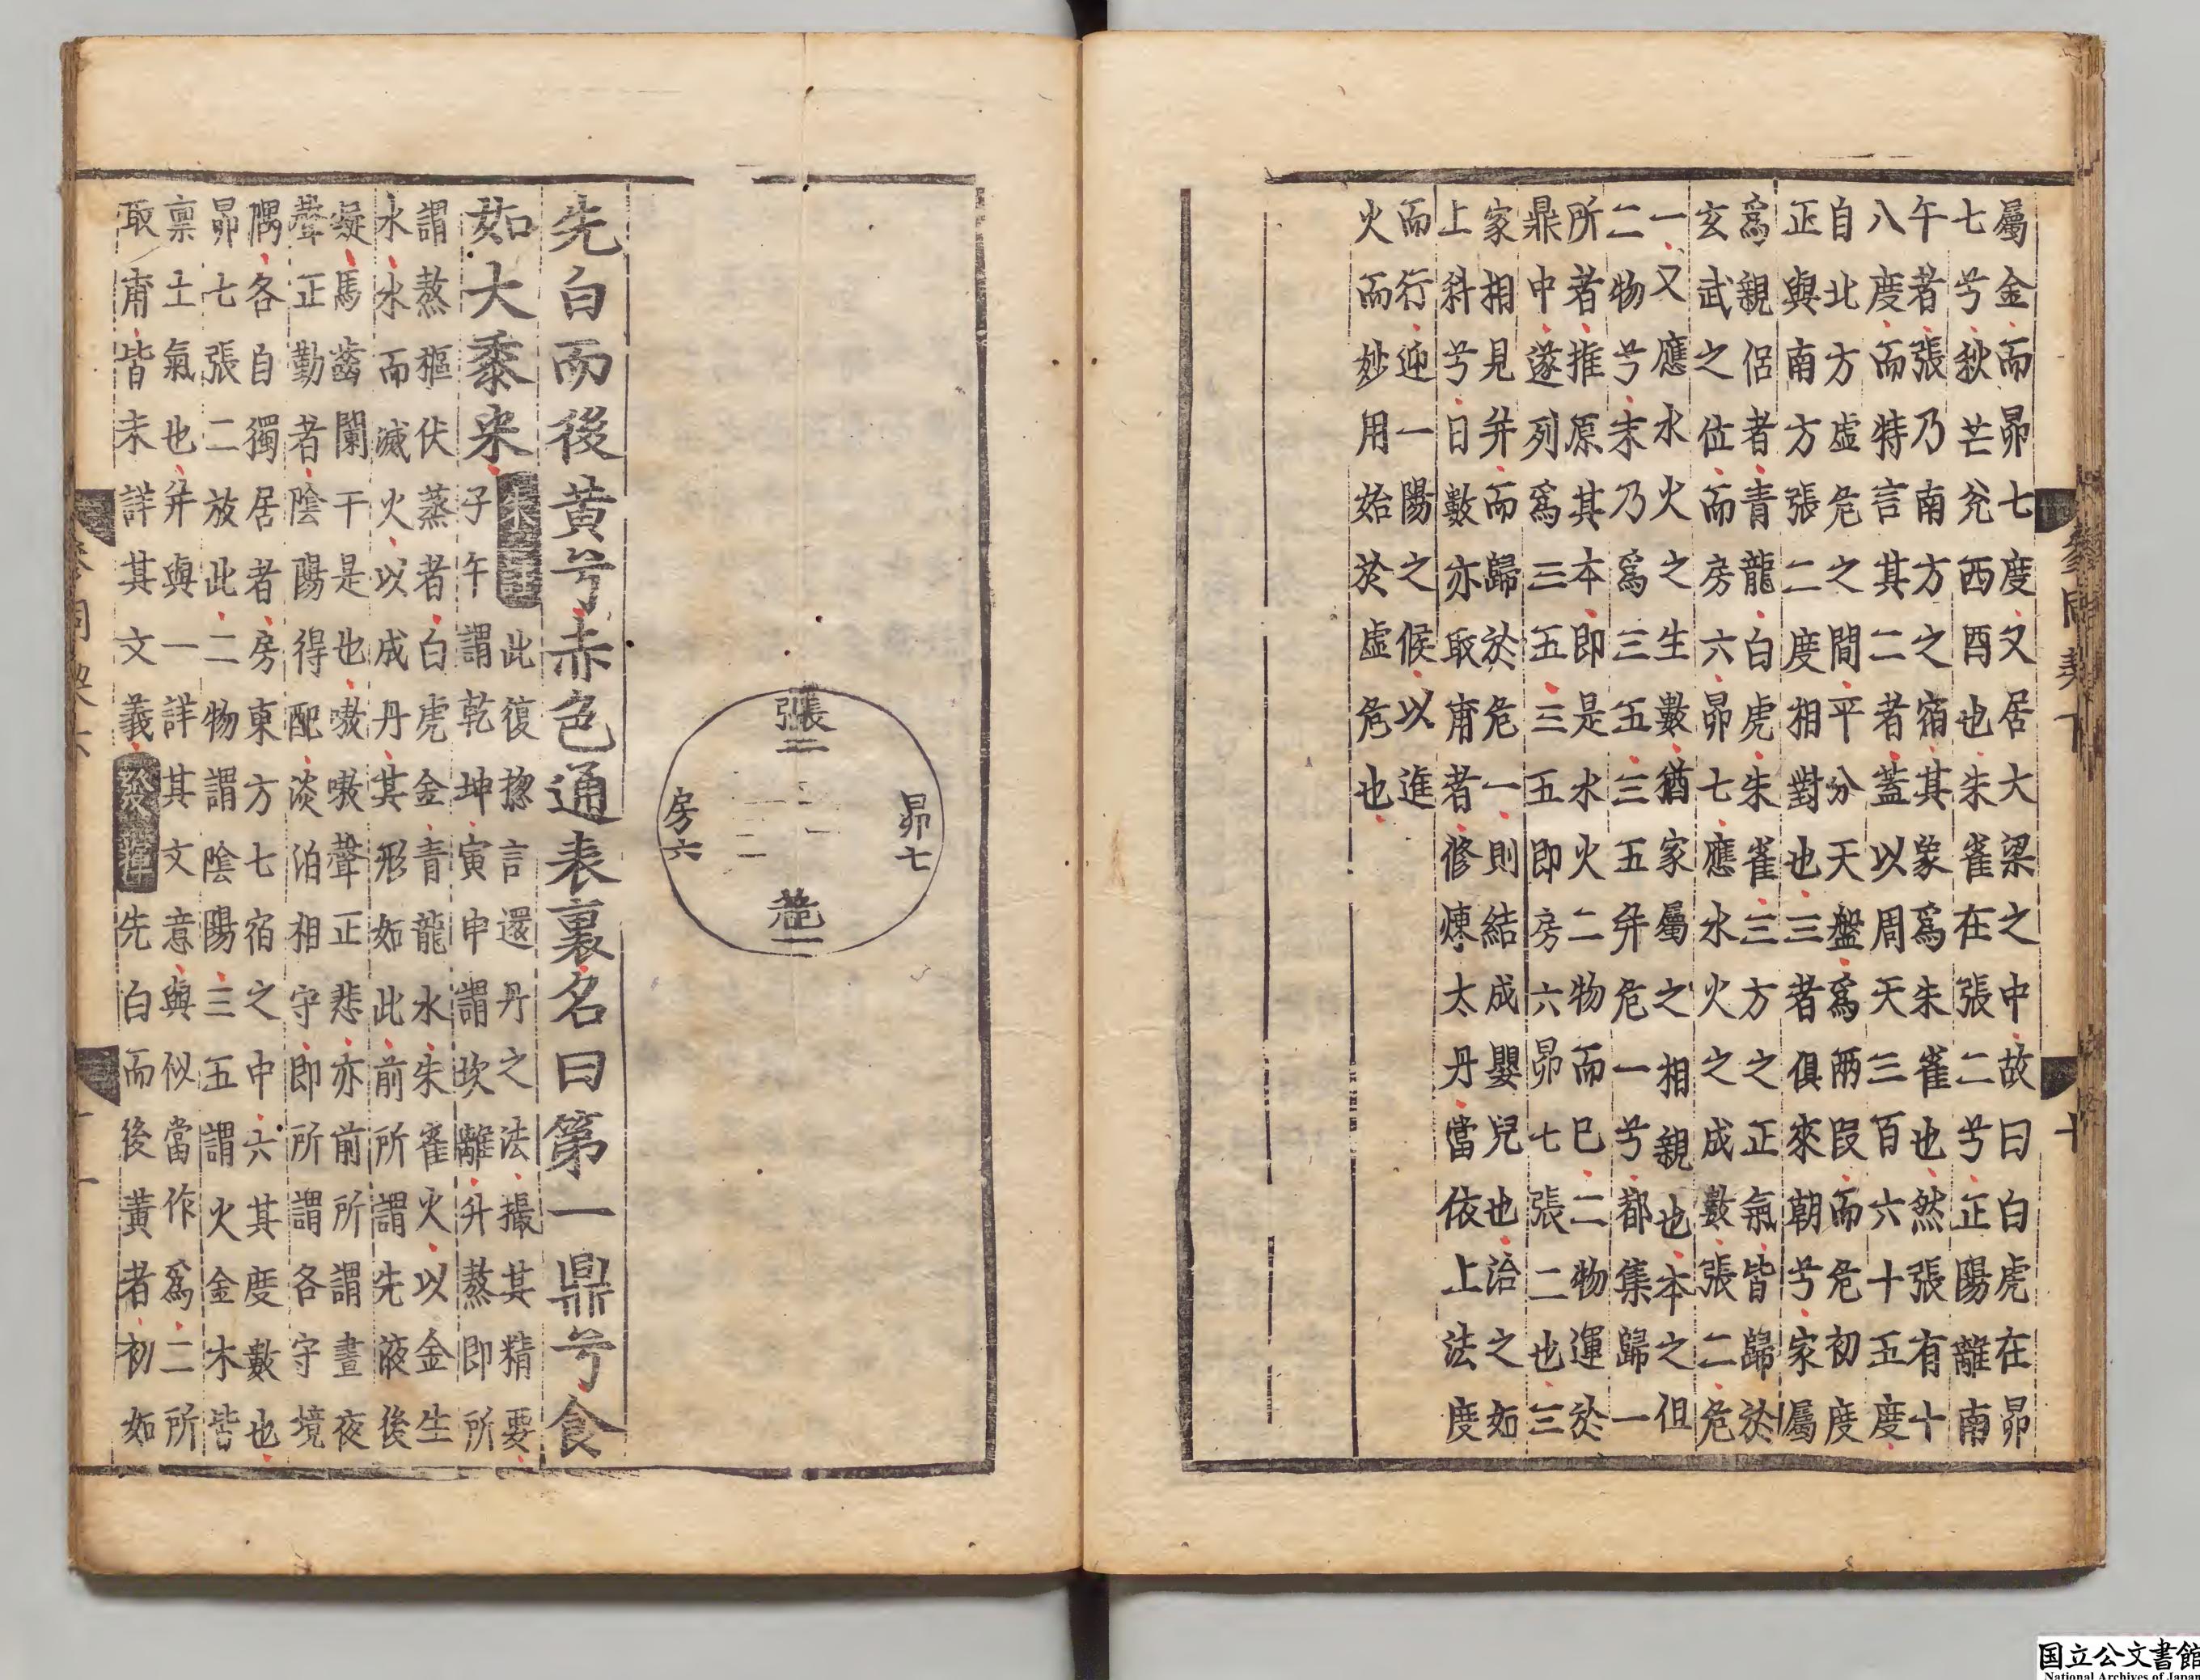 屬金而昴七度又居大梁之中故曰白虎在昴
七兮秋芒兊西酉也朱雀在張二兮正陽離南
午者張乃南方之宿其象爲朱雀也然張有十
八度而特言其二者蓋以周天三百六十五度
自北方虚危之間平分天盤爲兩段而危初度
正與南方張二度相對也三者俱來朝兮家屬
爲親侶者青龍白虎朱雀三方之正氣皆歸於
玄武之位而房六昴七應水火之成數張二危
一又應水火之生數猶家屬之相親也本之但
二物兮末乃爲三五三五并危一兮都集歸一
所者推原其本即是水火二物而已二物運於
鼎中遂列爲三五三五即房六昴七張二也三
家相見并而歸於危一則結成嬰兒也治之如
上科兮日數亦取甫者修煉太丹當依上法度
而行迎一陽之候以進
火而妙用始於虚危也
參同契下
十
張二
昴七
房六
危一
先白而後黄兮赤色通表裏名曰第一鼎兮食
如大黍米
朱子曰
此復揔言還丹之法撮其精要
子午謂乾坤寅申謂坎離升蒸即所
謂蒸樞伏蒸者白虎金青龍水朱雀火以金生
水水而滅火以成丹其形如此前所謂先液後
凝馬齒闌干是也嗷嗷聲正悲亦前所謂晝夜
聲正勤者陰陽得配淡泊相守即所謂各守境
隅各自獨居者房東方七宿之中六其度數也
昴七張二放此二物謂陰陽三五謂火金木皆
禀土氣也并與一詳其文意與似當作爲二所
取甫皆未詳其文義
發揮
先白而後黄者初如
參同契下
十一
国立公文書館
National Archives of Japan